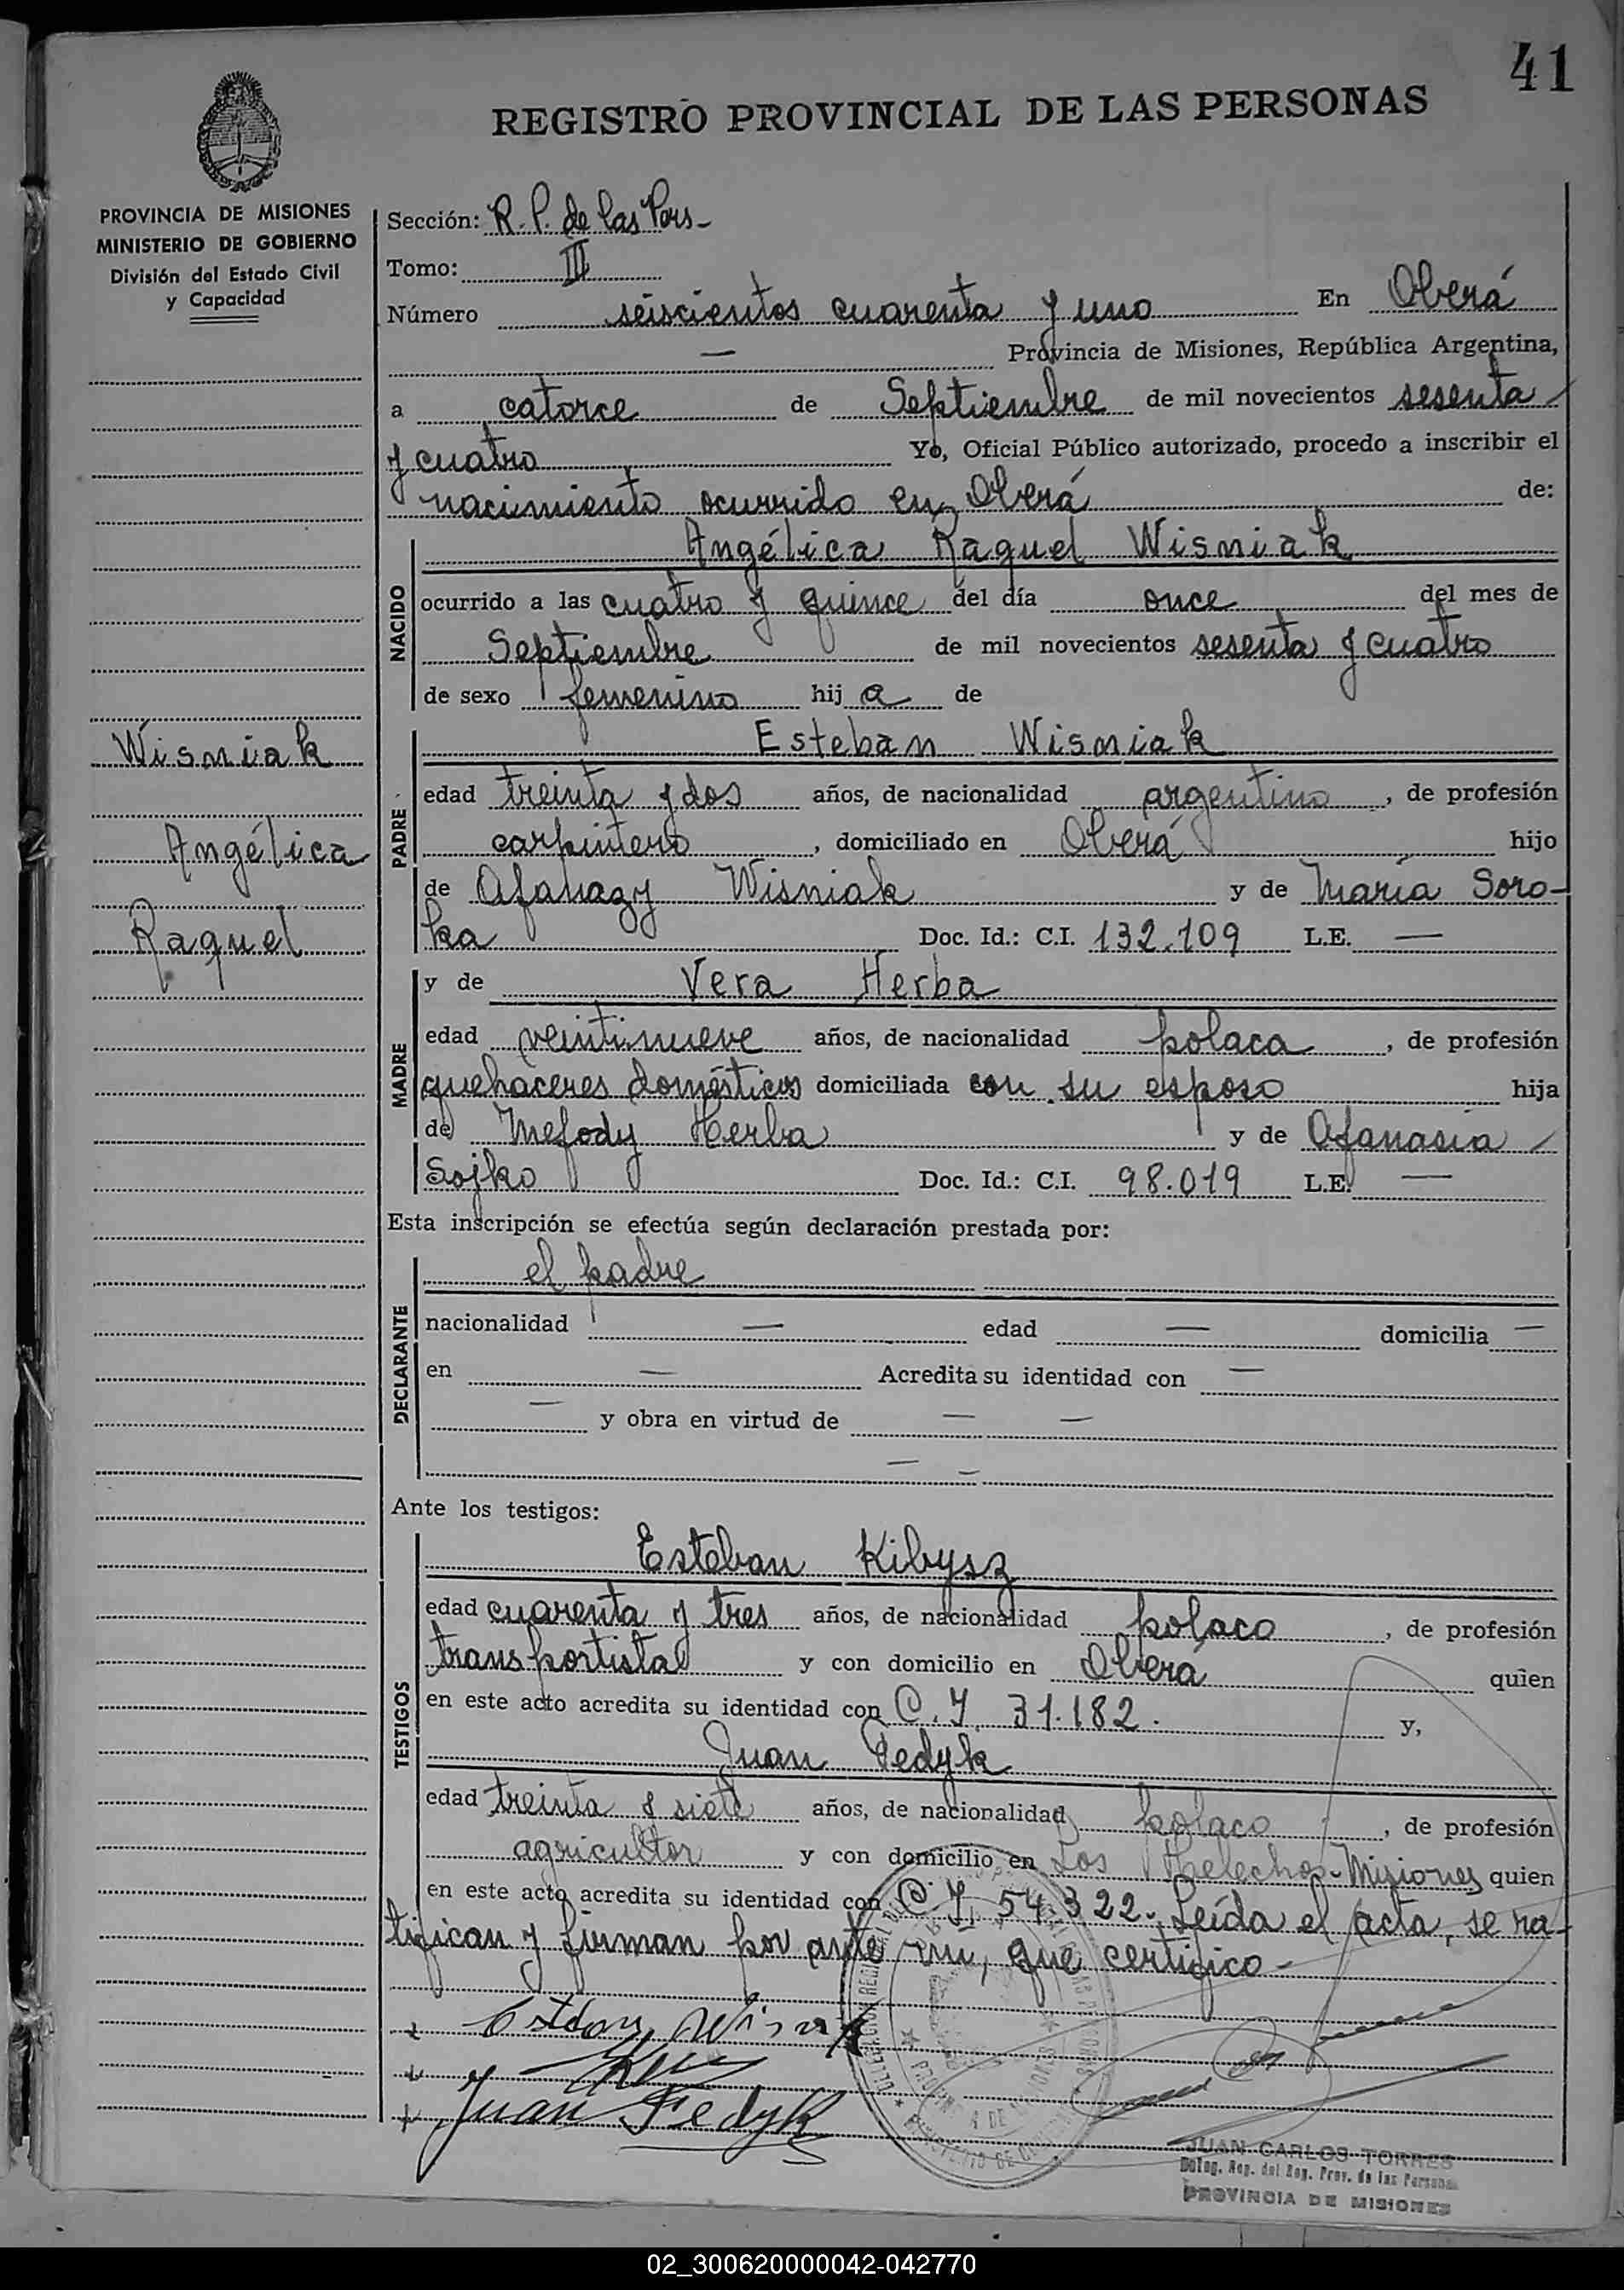 41
REGISTRO PROVINCIAL DE LAS PERSONAS
PROVINCIA DE MISIONES
MINISTERIO DE GOBIERNO
División del Estado Civil
y Capacidad
Sección: R. P. de las Pers-
Tomo: III
Número seiscientos cuarenta y uno En Oberá
— Provincia de Misiones, República Argentina,
a catorce de Septiembre de mil novecientos sesenta
y cuatro Yo, Oficial Público autorizado, procedo a inscribir el
nacimiento ocurrido en Oberá de:
NACIDO
Angélica Raquel Wisniak
ocurrido a las cuatro y quince del día once del mes de
Septiembre de mil novecientos sesenta y cuatro
de sexo femenino hij a de
Wisniak
Angélica
Raquel
PADRE
Esteban Wisniak
edad treinta y dos años, de nacionalidad argentino, de profesión
carpintero, domiciliado en Oberá hijo
de Afanazy Wisniak y de María Soro-
ka Doc. Id.: C.I. 132.109 L.E. —
MADRE
y de Vera Herba
edad veintinueve años, de nacionalidad polaca, de profesión
quehaceres domésticos domiciliada con su esposo hija
de Mefody Herba y de Afanasia
Sojko Doc. Id.: C.I. 98.019 L.E. —
Esta inscripción se efectúa según declaración prestada por:
DECLARANTE
el padre
nacionalidad — edad — domicilia —
en — Acredita su identidad con —
— y obra en virtud de — —
— —
Ante los testigos:
TESTIGOS
Esteban Kibysz
edad cuarenta y tres años, de nacionalidad polaco, de profesión
transportista y con domicilio en Oberá quien
en este acto acredita su identidad con C. I. 31.182. y,
Juan Fedyk
edad treinta y siete años, de nacionalidad polaco, de profesión
agricultor y con domicilio en Los Helechos-Misiones quien
en este acto acredita su identidad con C. I. 54.322. Leída el acta, se ra-
tifican y firman por ante mi, que certifico-
Juan Fedyk
JUAN CARLOS TORRES
Deleg. Reg. del Reg. Prov. de las Personas
PROVINCIA DE MISIONES
02_300620000042-042770